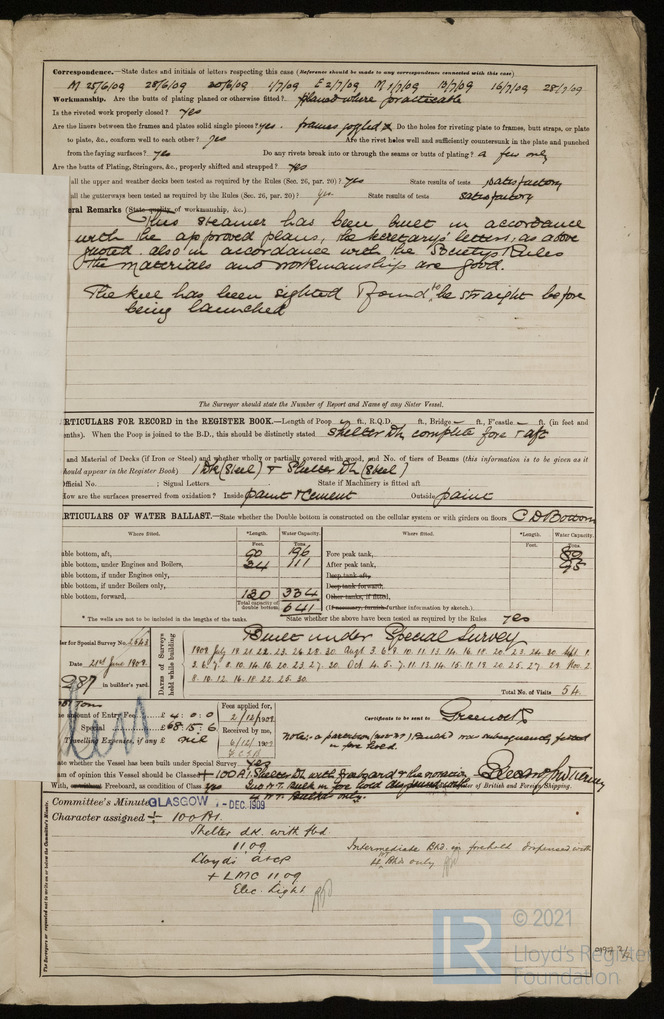 Correspondence.—State dates and initials of letters respecting this case (Reference should be made to any correspondence connected with this case)
M 25/6/09 28/6/09 30/6/09 1/7/09 E 2/7/09 M 1/7/09 13/7/09 16/7/09 28/7/09
Workmanship. Are the butts of plating planed or otherwise fitted? planed where practicable
Is the riveted work properly closed? yes
Are the liners between the frames and plates solid single pieces? yes. frames joggled Do the holes for riveting plate to frames, butt straps, or plate
to plate, &c., conform well to each other? yes Are the rivet holes well and sufficiently countersunk in the plate and punched
from the faying surfaces? yes Do any rivets break into or through the seams or butts of plating? a few only
Are the butts of Plating, Stringers, &c., properly shifted and strapped? yes
all the upper and weather decks been tested as required by the Rules (Sec. 26, par. 20)? yes State results of tests satisfactory
all the gutterways been tested as required by the Rules (Sec. 26, par. 20)? yes State results of tests satisfactory
eral Remarks (State quality of workmanship, &c.)
This steamer has been built in accordance
with the approved plans, the secretarys' letters, as above
quoted, also in accordance with the Society's Rules
The materials and workmanship are good.
The keel has been sighted & found to be straight before
being launched
The Surveyor should state the Number of Report and Name of any Sister Vessel.
RTICULARS FOR RECORD in the REGISTER BOOK.—Length of Poop ft., R.Q.D. ft., Bridge ft., F'castle ft. (in feet and
nths). When the Poop is joined to the B.D., this should be distinctly stated Shelter Dk complete fore & aft
and Material of Decks (if Iron or Steel) and whether wholly or partially covered with wood, and No. of tiers of Beams (this information is to be given as it
hould appear in the Register Book) 1 Dk (Steel) & Shelter Dk (Steel)
Official No. ; Signal Letters State if Machinery is fitted aft
How are the surfaces preserved from oxidation? Inside paint & cement Outside paint
RTICULARS OF WATER BALLAST.—State whether the Double bottom is constructed on the cellular system or with girders on floors C D Bottom
Where fitted. *Length. Water Capacity. Where fitted. *Length. Water Capacity.
Feet. Tons Feet. Tons
ble bottom, aft, 90 196 Fore peak tank, 80
ble bottom, under Engines and Boilers, 24 111 After peak tank, 95
ble bottom, if under Engines only, Deep tank aft,
ble bottom, if under Boilers only, Deep tank forward,
ble bottom, forward, 120 334 Other tanks, if fitted,
Total capacity of double bottom 641 (If necessary, furnish further information by sketch.)
* The wells are not to be included in the lengths of the tanks. State whether the above have been tested as required by the Rules yes
er for Special Survey No. 2643
Date 21st June 1909
287 in builder's yard.
DATES of Surveys held while building
Built under Special Survey
1909 July 19. 21. 22. 23. 26. 28. 30. Aug. 3. 6. 9. 10. 11. 13. 14. 16. 18. 20. 23. 24. 30. Sept. 1
3. 6. 7. 8. 10. 14. 16. 20. 23. 27. 30. Oct. 4. 5. 7. 11. 13. 14. 15. 18. 19. 20. 25. 27. 29. Nov. 2.
8. 10. 12. 16. 18. 22. 25. 30.
Total No. of Visits 54.
Fees applied for,
2/12/1909
Received by me,
6/12/1909
e amount of Entry Fee £ 4 : 0 : 0
Special £ 68 : 15 : 6
Travelling Expenses, if any £ nil
Certificate to be sent to Greenock
ate whether the Vessel has been built under Special Survey yes
am of opinion this Vessel should be Classed + 100 A1. Shelter Dk with freeboard & the notation
With, or without Freeboard, as condition of Class yes
of British and Foreign Shipping.
Committee's Minute GLASGOW - DEC. 1909
Character assigned + 100 A1.
Shelter dk. with fbd
11.09
Lloyd's a & cp
+ LMC 11.09
Elec. Light
Intermediate Bhd. in forehold dispensed with
4 WT Bhds only
The Surveyors are requested not to write on or below the Committee's Minute.
LR
© 2021
Lloyd's Register
Foundation